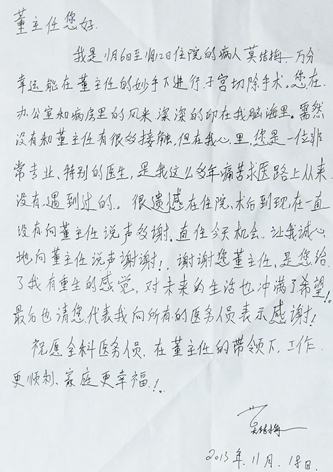 董主任您好.
我是11月6日至11月12日住院的病人莫结梅.万分
幸运能在董主任的妙手下进行子宫切除手术.您在
办公室和病房里的风采深深的印在我脑海里.虽然
没有和董主任有很多接触.但在我心里.您是一位非
常专业、特别的医生,是我这么多年痛苦求医路上从来
没有遇到过的。很遗憾在住院,术向到现在一直
没有向董主任说声多谢.直在今天机会,让我诚心
地向董主任说声谢谢!谢谢您董主任,是您给
了我有重生的感觉,对未来的生活也冲满了希望!
最后也请您代表我向所有的医务人员表示感谢!
祝愿全科医务人员.在董主任的带领下.工作
更顺利、家庭更幸福!
莫结梅
2013年.11月.18日.